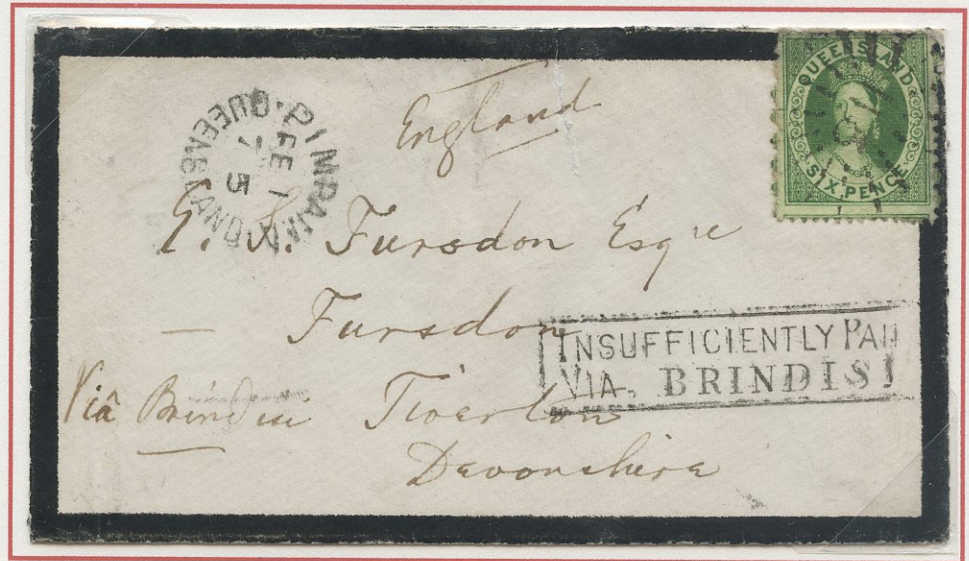 QUEENSLAND
SIX PENCE
PIMPAMA
FE 1
75
QUEENSLAND
England
G. S. Fursdon Esqre
Fursdon
INSUFFICIENTLY PAID
VIA. BRINDISI
Viâ Brindisi Tiverton
Devonshire